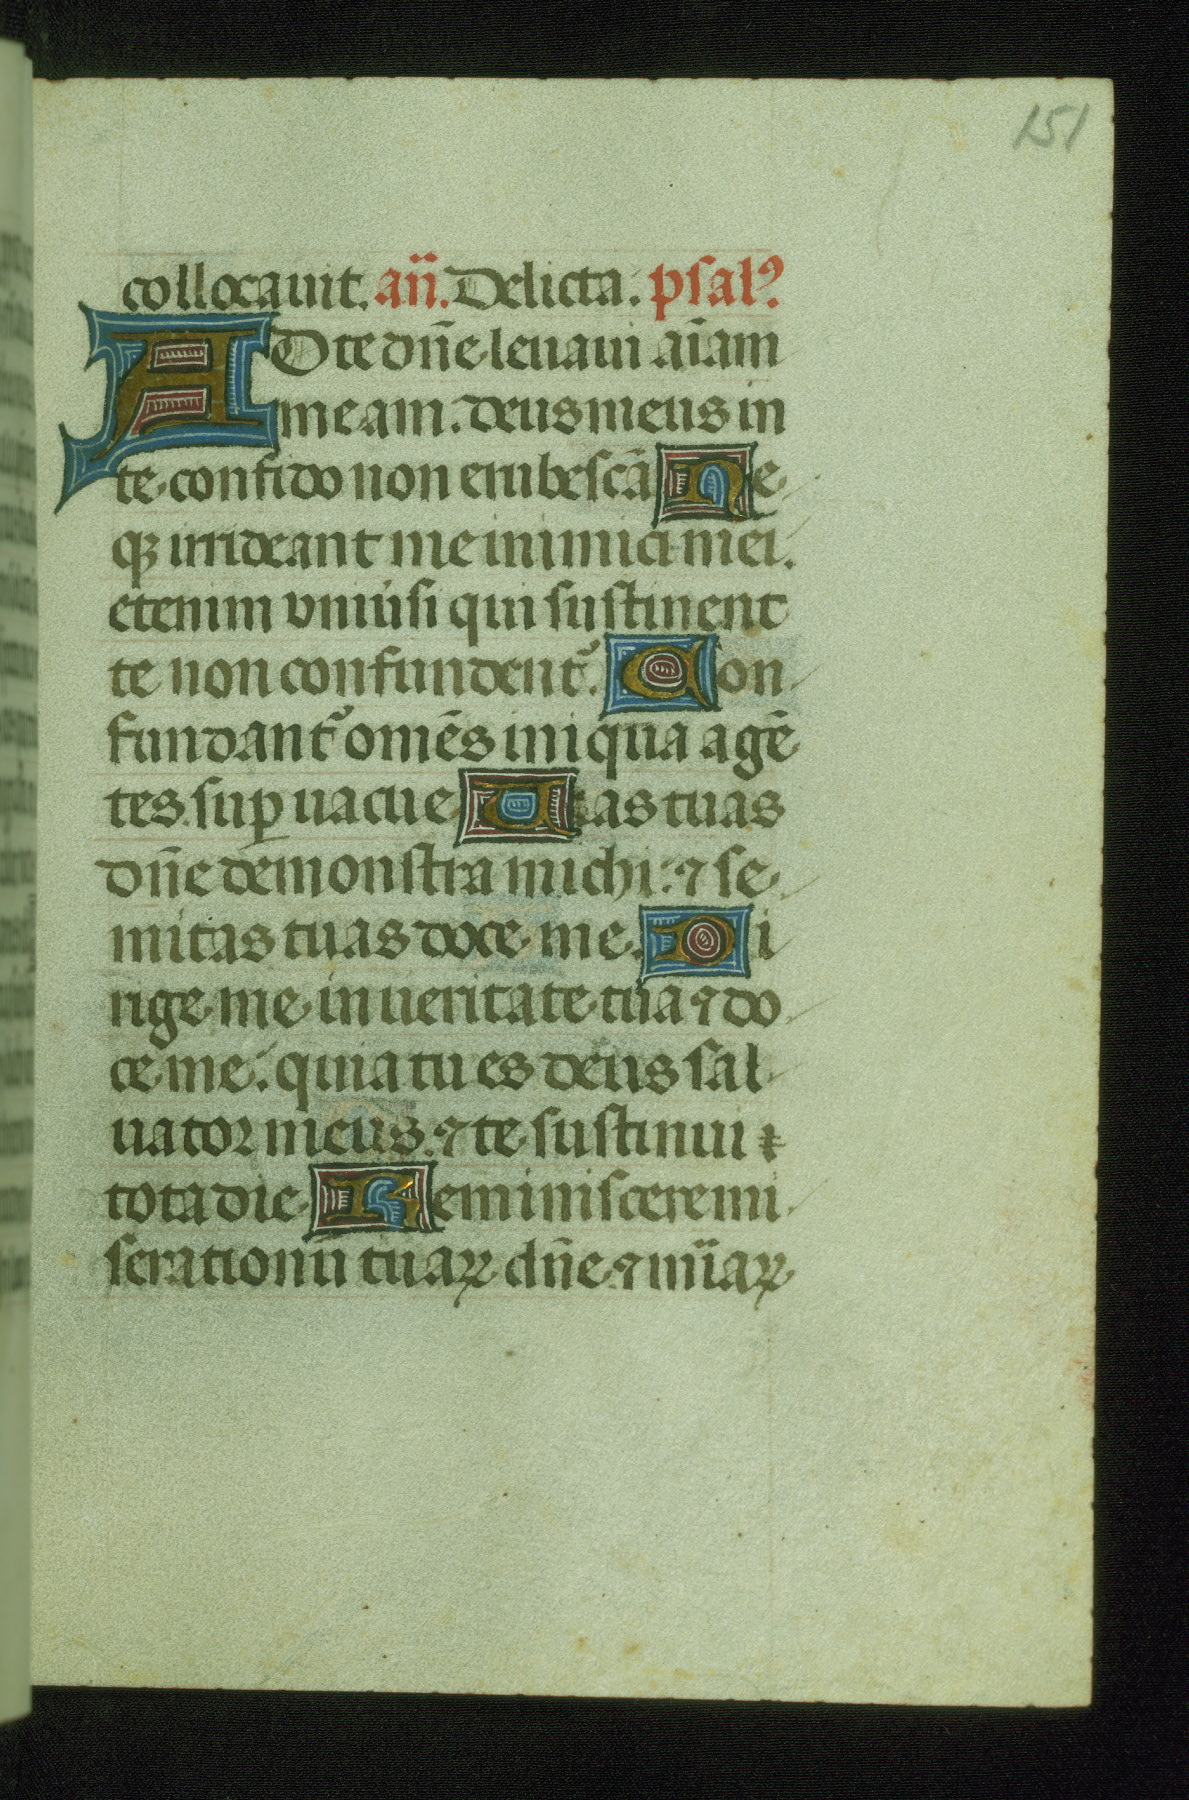 151
collocauit. añ. Delicta. psalꝰ.
AD te dñe leuaui aīam
meam. deus meus in
te confido non erubescā Ne
qꝫ irrideant me inimici mei.
etenim vniu'si qui sustinent
te non confundent᷑. Con
fundant᷑ omēs iniqua agē
tes suꝑuacue Uias tuas
dñe demonstra michi: ⁊ se
mitas tuas doce me. Di
rige me in ueritate tua ⁊ do
ce me. quia tu es deus sal
uator meus. ⁊ te sustinui
tota die Reminiscere mi
serationū tuaꝝ dñe ⁊ mīaꝝ